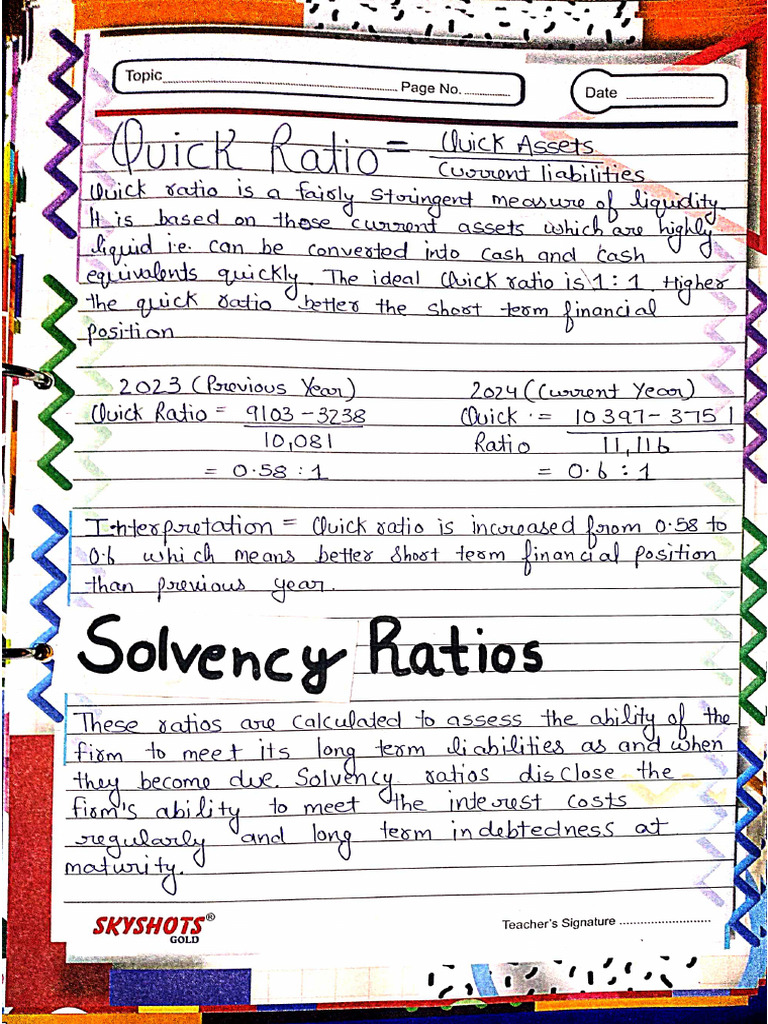 Topic Page No. Date
Quick Ratio = Quick Assets
Current liabilities
Quick ratio is a fairly stringent measure of liquidity.
It is based on those current assets which are highly
liquid i.e. can be converted into cash and cash
equivalents quickly. The ideal Quick ratio is 1 : 1. Higher
the quick ratio better the short term financial
position
2023 (Previous Year) 2024 (Current Year)
Quick Ratio = 9103 - 3238 Quick = 10397 - 3751
10,081 Ratio 11,116
= 0.58 : 1 = 0.6 : 1
Interpretation = Quick ratio is increased from 0.58 to
0.6 which means better short term financial position
than previous year.
Solvency Ratios
These ratios are calculated to assess the ability of the
firm to meet its long term liabilities as and when
they become due. Solvency ratios disclose the
firm's ability to meet the interest costs
regularly and long term indebtedness at
maturity.
SKYSHOTS® Teacher's Signature
GOLD